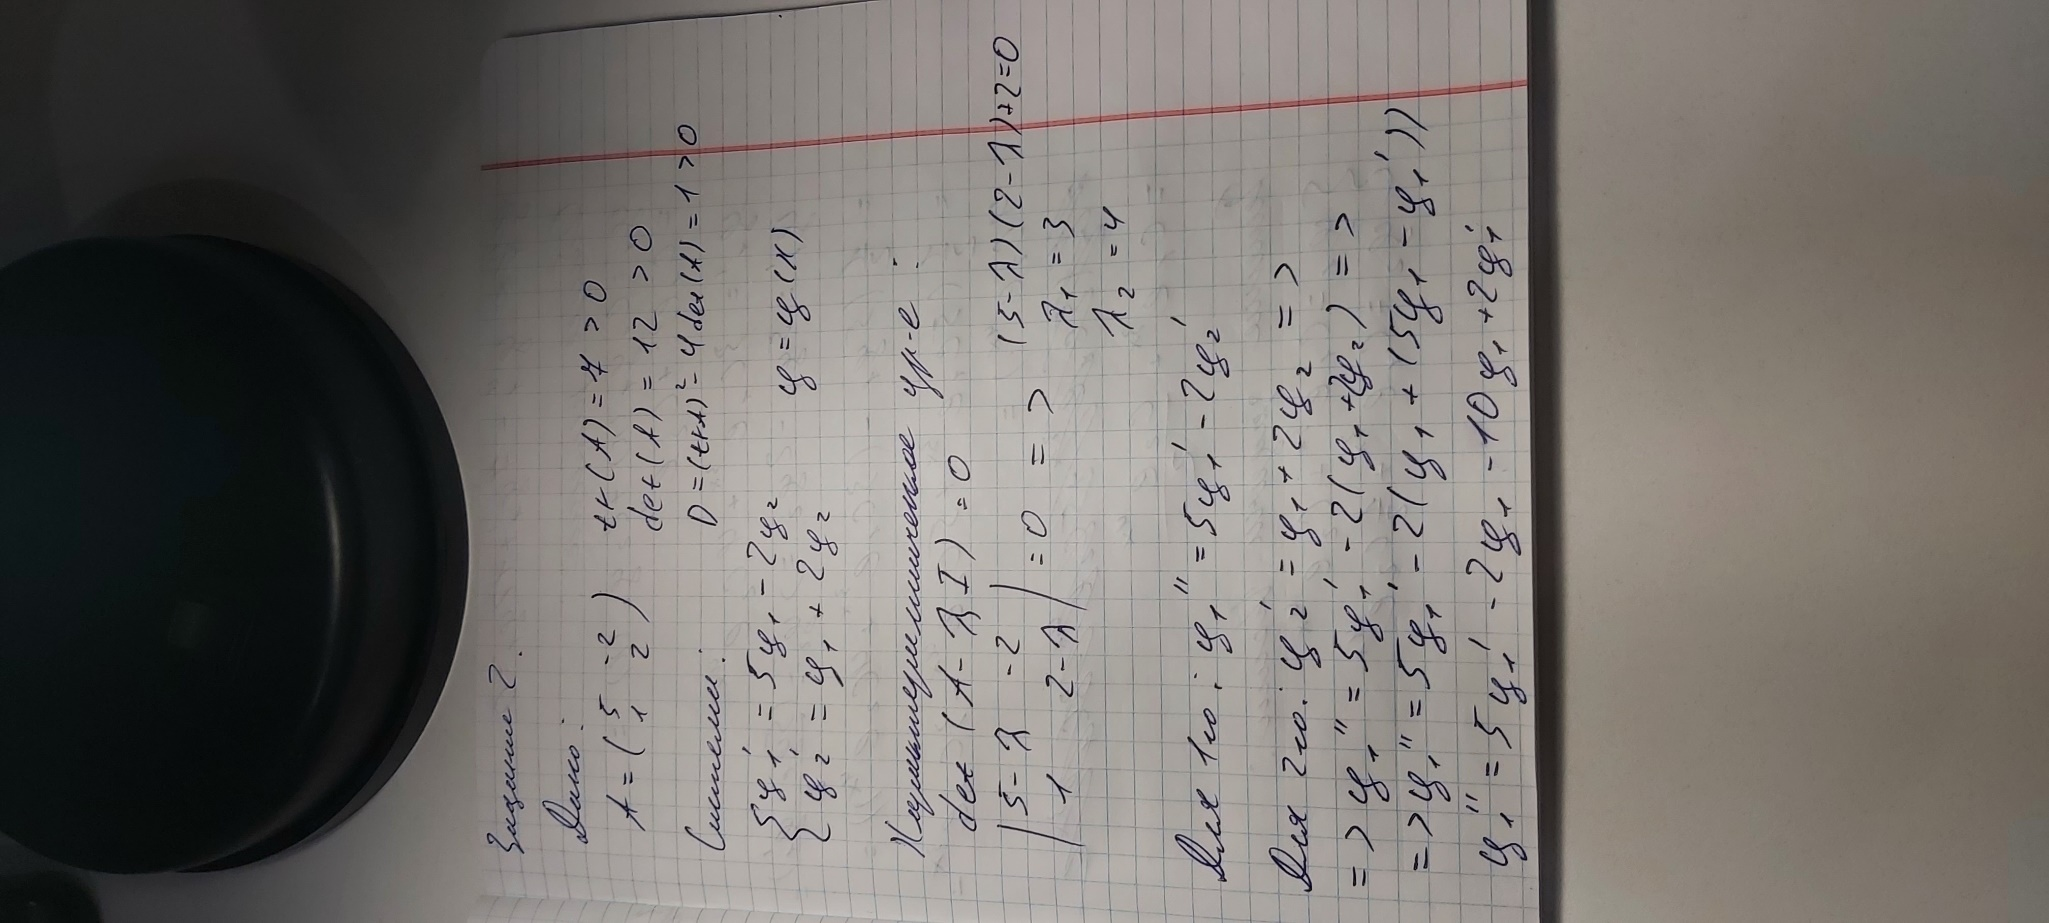 Задание 2.
Дано:
A = ( 5 -2 tr(A) = 7 > 0
1 2 ) det(A) = 12 > 0
D = (trA)² - 4det(A) = 1 > 0
Система:
{ y₁' = 5y₁ - 2y₂
{ y₂' = y₁ + 2y₂ y = y(x)
Характеристическое ур-е:
det(A - λI) = 0
| 5-λ -2
1 2-λ | = 0 => (5-λ)(2-λ)+2=0
λ₁ = 3
λ₂ = 4
Для 1го: y₁'' = 5y₁' - 2y₂'
Для 2го: y₂' = y₁ + 2y₂ =>
=> y₁'' = 5y₁' - 2(y₁ + 2y₂) =>
=> y₁'' = 5y₁' - 2(y₁ + (5y₁ - y₁'))
y₁'' = 5y₁' - 2y₁ - 10y₁ + 2y₁'